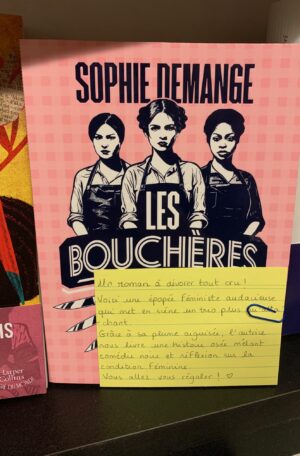 SOPHIE DEMANGE
LES
BOUCHÈRES
Un roman à dévorer tout cru !
Voici une épopée féministe audacieuse
qui met en scène un trio plus
chant.
Grâce à sa plume aiguisée, l'autrice
nous livre une histoire osée mêlant
comédie noire et réflexion sur la
condition féminine.
Vous allez vous régaler ! ♡
Harper
Collins